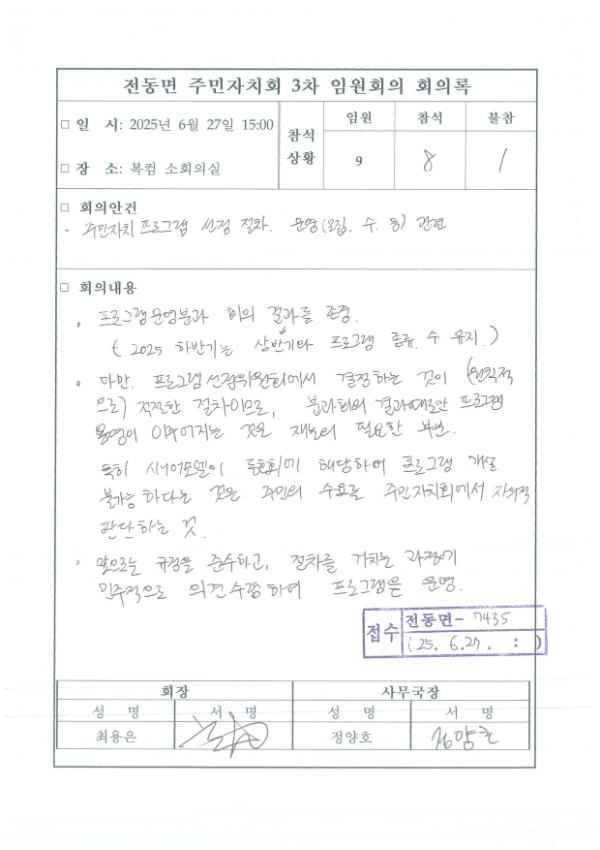 전동면 주민자치회 3차 임원회의 회의록
□ 일 시: 2025년 6월 27일 15:00
□ 장 소: 복컴 소회의실
참석
상황
임원 참석 불참
9 8 1
□ 회의안건
- 주민자치 프로그램 선정 절차. 운영(모집. 수. 등) 관련
□ 회의내용
프로그램운영분과 회의 결과를 존중.
( 2025 하반기는 상반기와 프로그램 종류. 수 유지.)
다만. 프로그램선정위원회에서 결정하는 것이 (원칙적
으로) 적절한 절차이므로, 분과회의 결과대로만 프로그램
운영이 이루어지는 것은 재논의 필요한 부분.
특히 시니어모델이 동호회에 해당하여 프로그램 개설
불가능하다는 것은 주민의 수요를 주민자치회에서 자의적
판단하는 것.
앞으로는 규정을 준수하고, 절차를 거치는 과정에
민주적으로 의견수렴하여 프로그램을 운영.
접수 전동면- 7435
(25. 6.27. : )
회장 사무국장
성 명 서 명 성 명 서 명
최용은 정양호